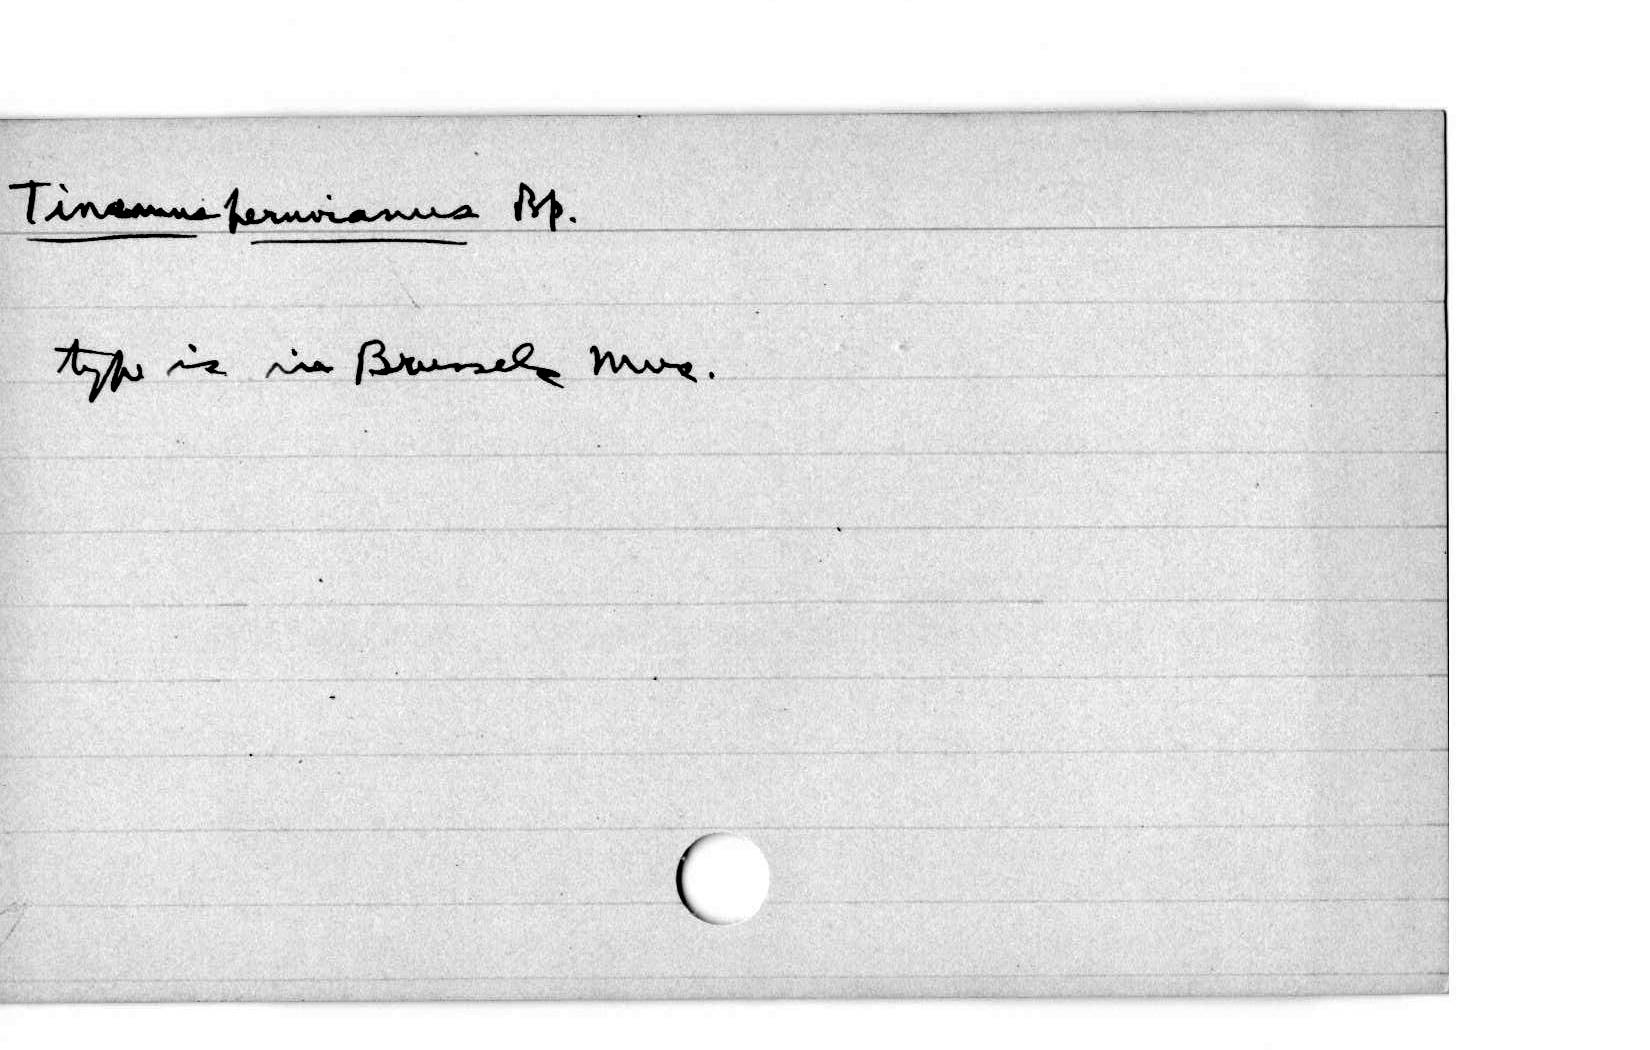 Tinamus peruvianus Bp.
type is in Brussels Mus.